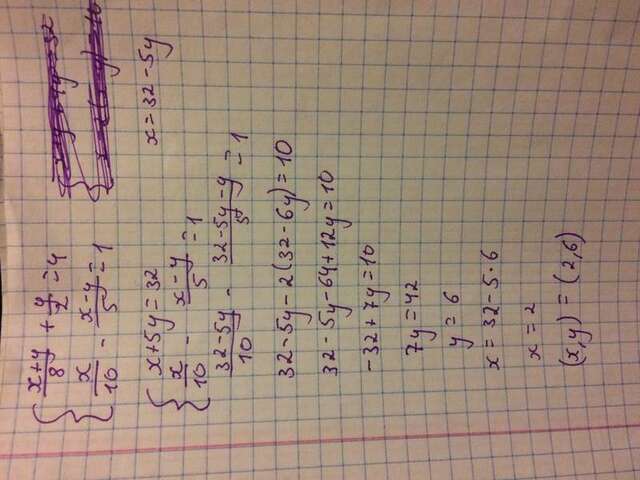 { (x+y)/8 + y/2 = 4
x/10 - (x-y)/5 = 1
{ x+5y=32
x = 32 - 5y
x/10 - (x-y)/5 = 1
(32-5y)/10 - (32-5y-y)/5 = 1
32-5y-2(32-6y)=10
32-5y-64+12y=10
-32+7y=10
7y=42
y = 6
x = 32-5·6
x = 2
(x,y) = (2,6)